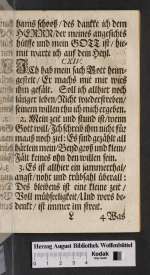 harrd ſchoſß / deß danckte ich dem
HERRN / der meines angeſichts
huͤlffe und mein GOTT iſt / hie-
mit warte ich auf den Heyl.
CXIV.
Ich hab mein ſach Gott heim-
geſtelt / Er machs mit mir wies
ihm gefaͤlt. Soll ich allhier noch
laͤnger leben / Nicht widerſtreben /
ſeinem willen thu ich mich ergeben.
2. Mein zeit und ſtund iſt / wenn
Gott will / Ich ſchreib ihm nicht fuͤr
maaß noch ziel: Es ſind gezehlt all
haͤrlein mein / Beyd groß und klein /
Faͤlt keines ohn den willen ſein.
3. Es iſt allhier ein jammerthal /
angſt / noht und truͤbſahl uͤberall:
Des bleibens iſt eine kleine zeit /
Voll muͤhſeligkeit / Und wers be-
denckt / iſt immer im ſtreit.
L 4. Was
Herzog August Bibliothek Wolfenbüttel